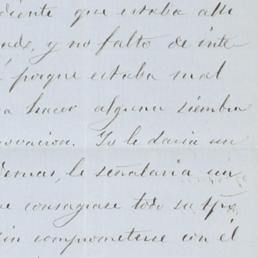 diente que estaba alli
ando, y no falto de inte
porque estaba mal
a hacer alguna siembra
novacion. Yo le daria un
demas, le señalaria un
e consagrase todo su
sin comprometerse con el